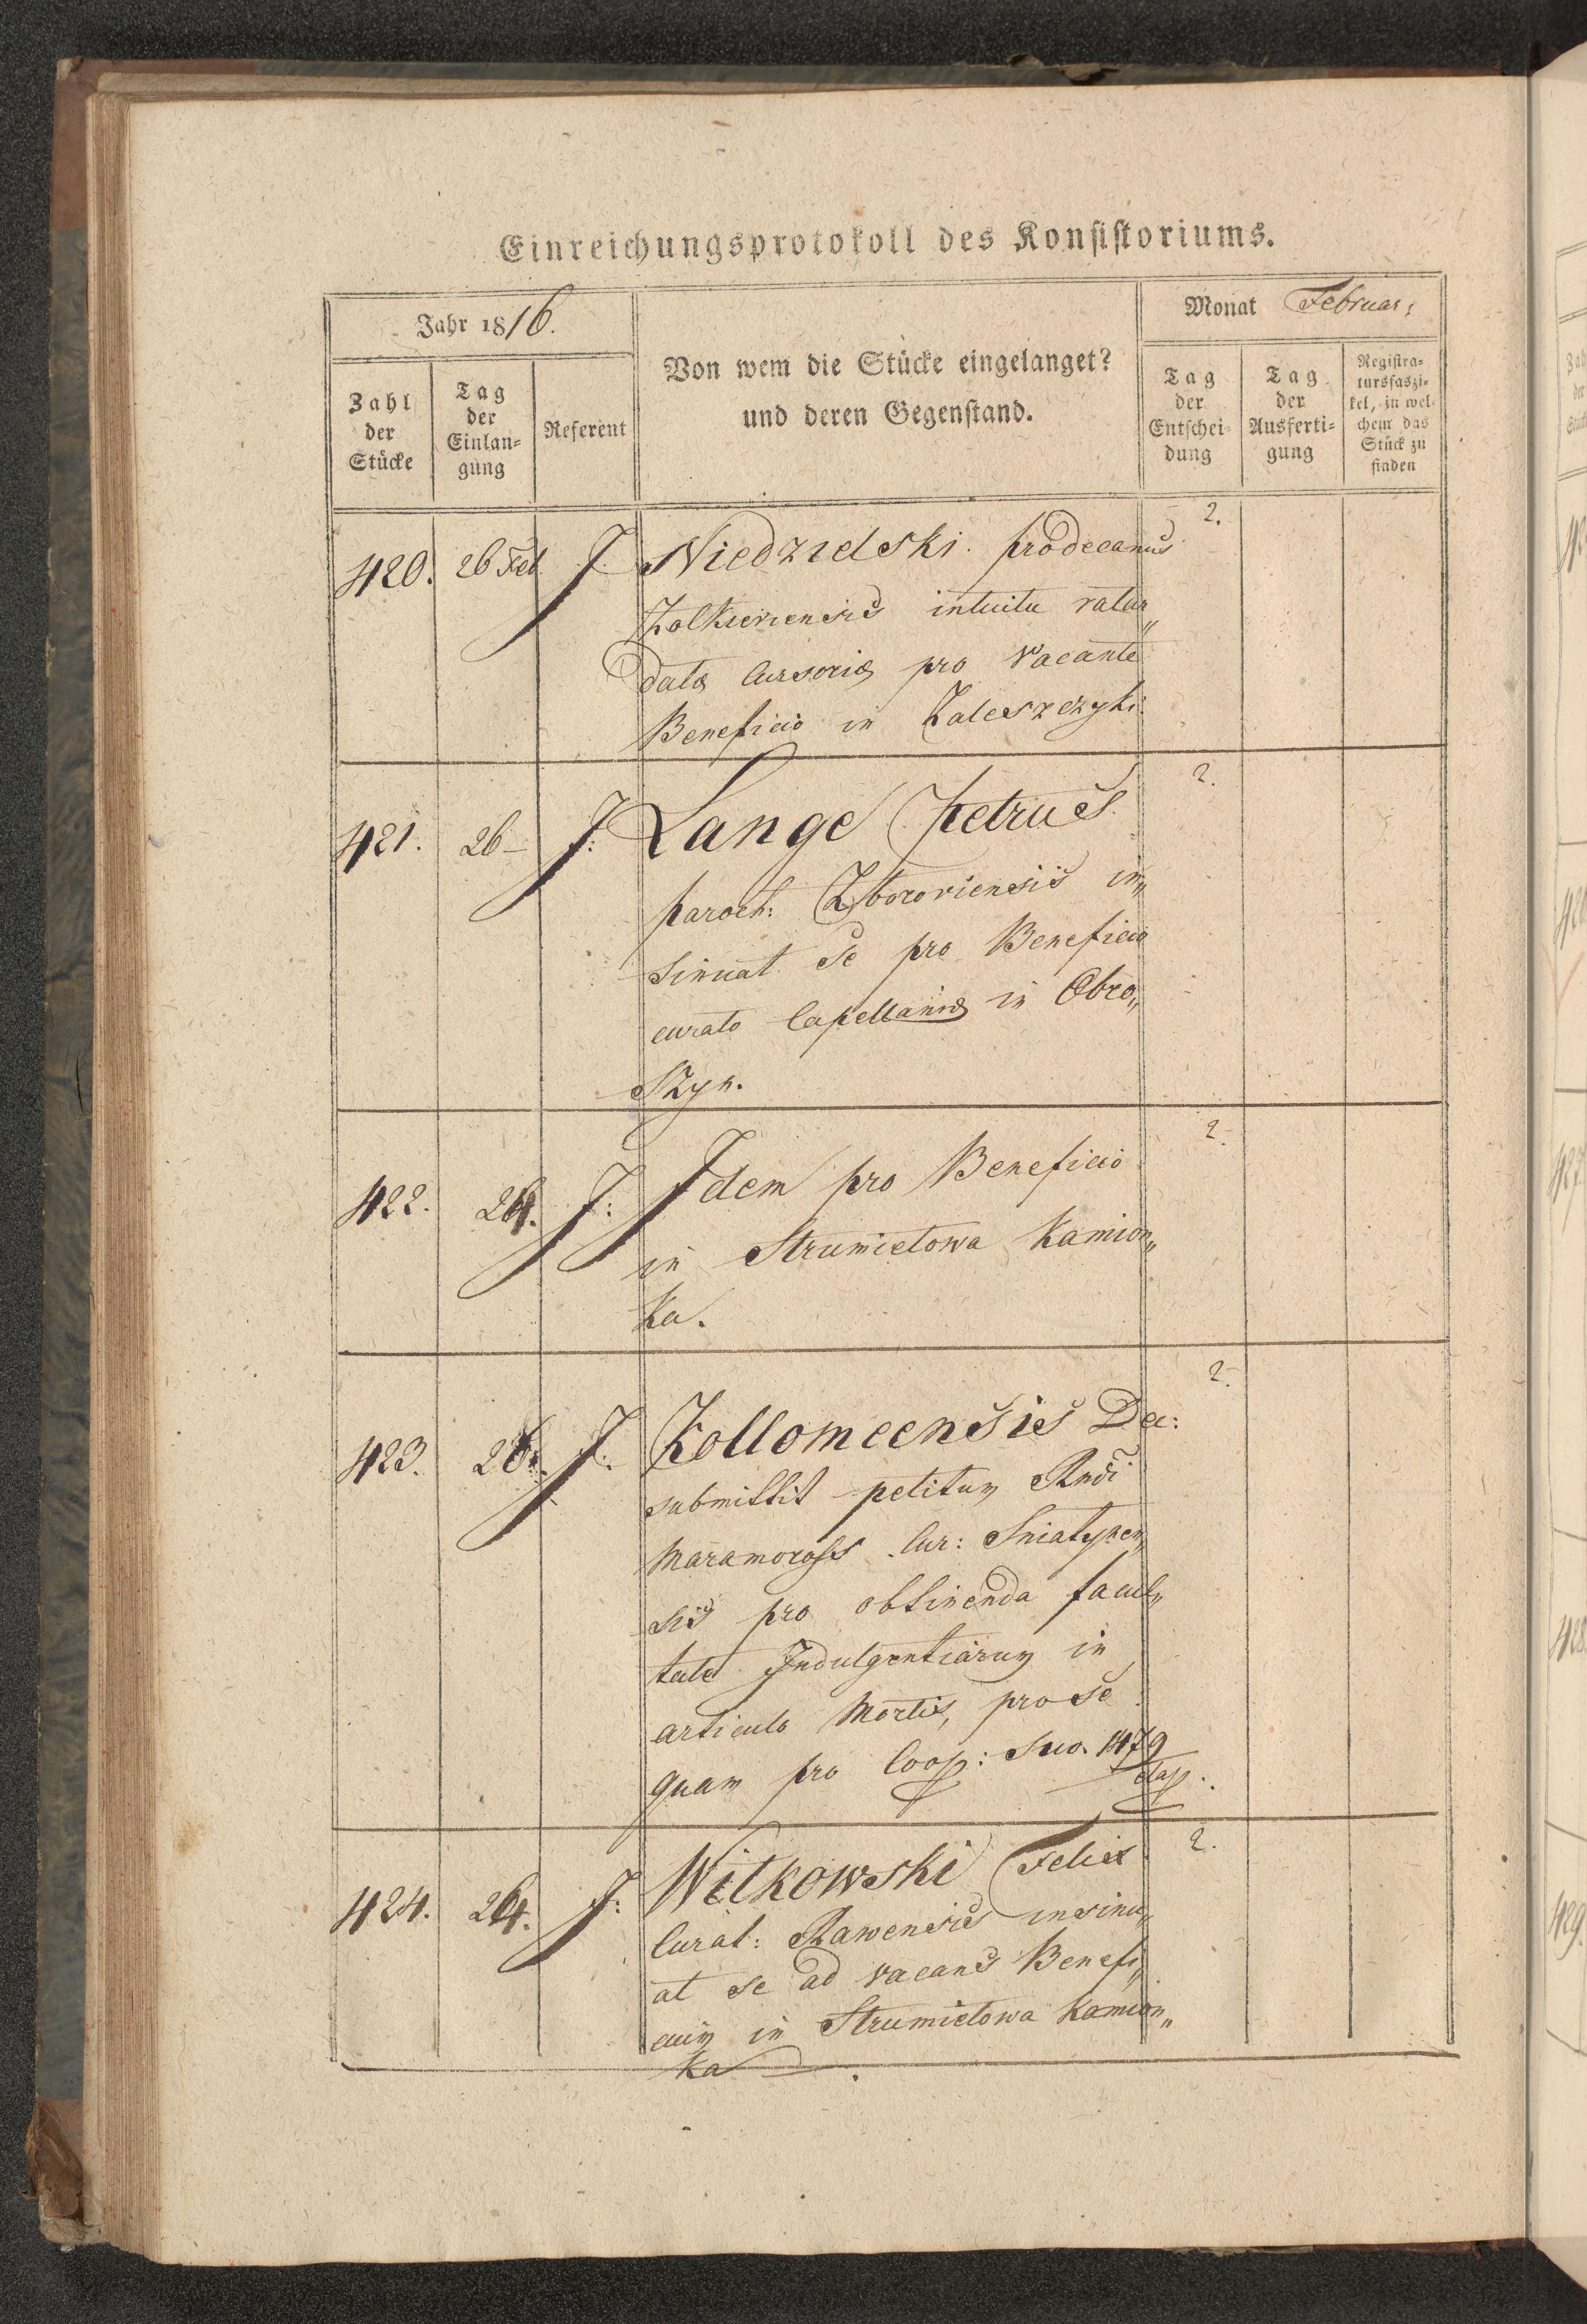 Einreichungsprotokoll des Konsistoriums.
Jahr 1816.
Monat Februar:
Zahl der Stücke
Tag der Einlan=gung
Referent
Von wem die Stücke eingelanget? und deren Gegenstand.
Tag der Entschei=dung
Tag der Ausferti=gung
Registra=tursfaszi=kel, in wel=chem das Stück zu finden
420. 26 Feb. J. Niedzielski prodecanus 2.
Zolkieviensis intuitu
data Cursoria pro vacante
Beneficio in Zaleszczyki.
421. 26 – J: Lange Petrus. 2.
paroch: Zboroviensis in„
sinuat se pro Beneficio
curato Capellaniæ in Obro„
szyn.
422. 26. J: Idem pro Beneficio 2.
in Strumielowa Kamion„
ka.
423. 26. J: Kollomeensis Dec: 2.
submittit petitum Rndi
Maramoross Cur: Sniatynen„
sis pro obtinenda facul„
tate Indulgentiarum in
articulo Mortis, pro se
quam pro Coop: suo. 1479
424. 26. J: Witkowski Felix 2.
Curat: Rawensis insinu„
at se ad vacans Benefi„
cium in Strumielowa Kamion„
ka.